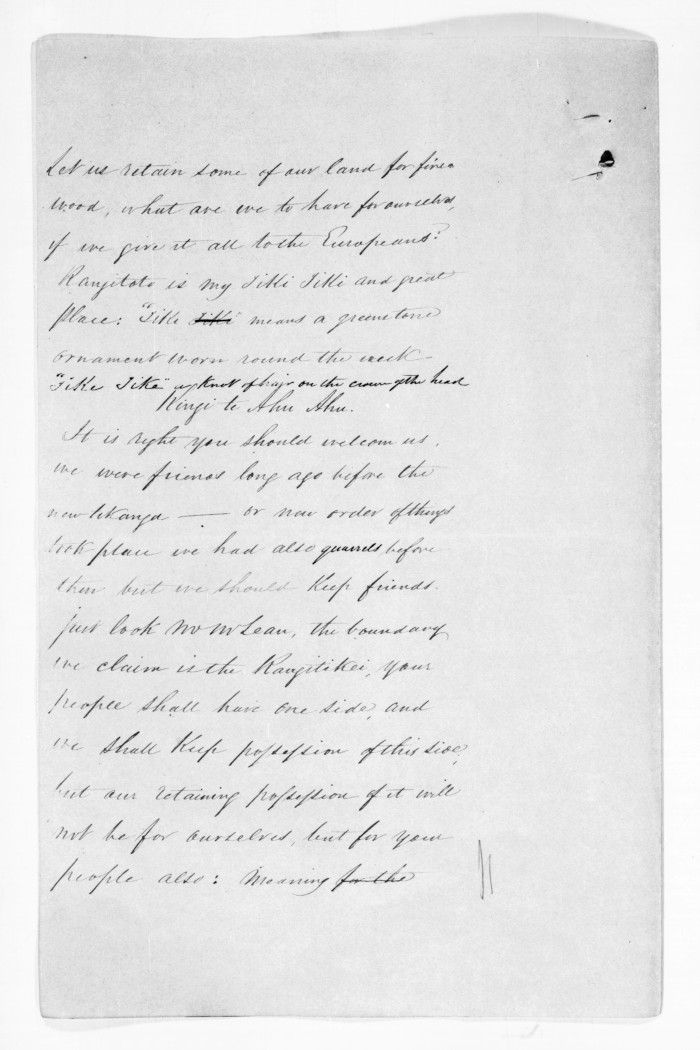 Let us retain some of our land for fire
wood, what are we to have for ourselves,
if we give it all to the Europeans?
Rangitoto is my Tiki Tiki and great
place: "Tiki Tiki" means a greenstone
ornament worn round the neck -
"Tiki Tiki" a Knot of hair on the crown of the head
Kingi te Ahu Ahu.
It is right you should welcom us,
we were friends long ago before the
new tikanga — or new order of things
took place we had also quarrels before
then but we should Keep friends.
just look Mr McLean, the boundary
we claim is the Rangitikei, your
people shall have one side, and
we shall Keep possession of this side,
but our retaining possession of it will
not be for ourselves, but for your
people also: Meaning for the